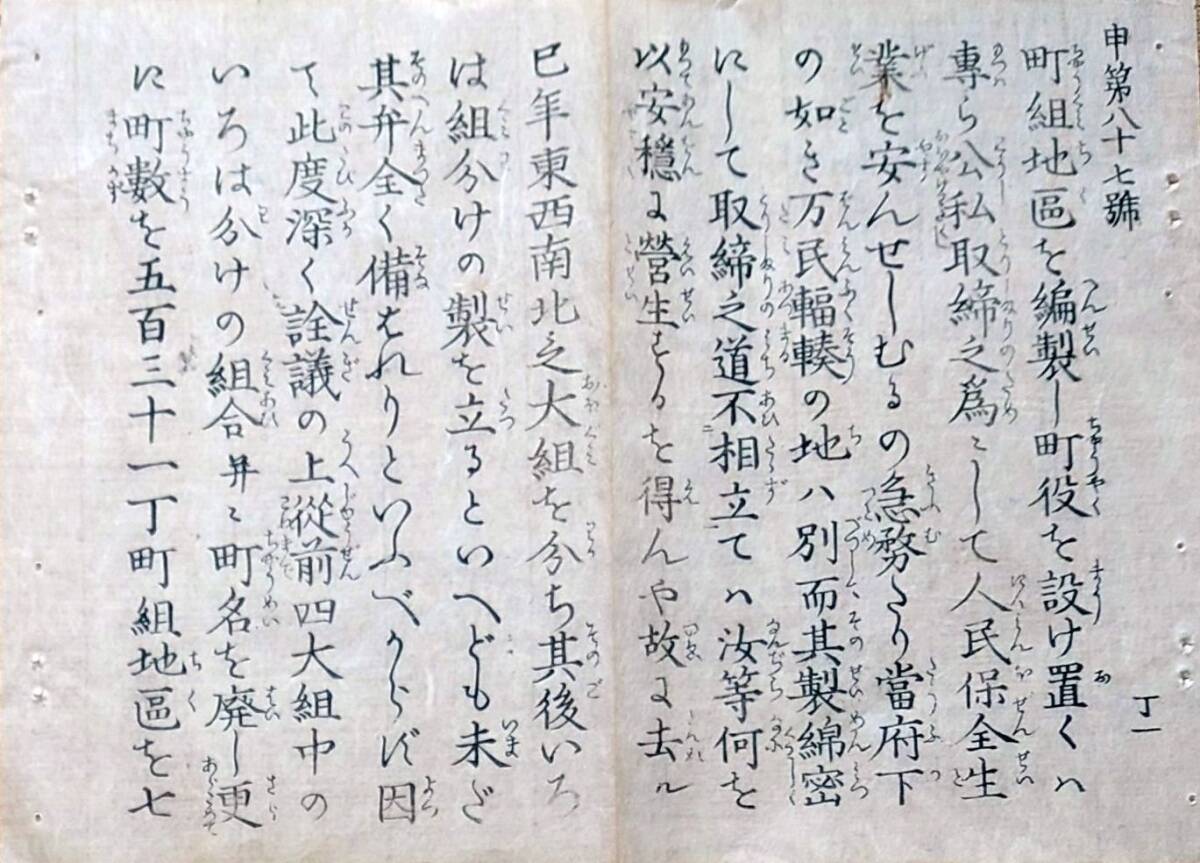 申第八十七號
丁一
町組地區を編製し町役を設け置くハ
専ら公私取締之爲ニして人民保全生
業を安んせしむるの急務たり當府下
の如き万民輻輳の地ハ別而其製綿密
にして取締之道不相立てハ汝等何を
以安穩に營生するを得んや故に去ル
巳年東西南北之大組を分ち其後いろ
は組分けの製を立るといへども未だ
其弁全く備はれりといふべからず因
て此度深く詮議の上從前四大組中の
いろは分けの組合并ニ町名を廃し更
に町数を五百三十一丁町組地區を七